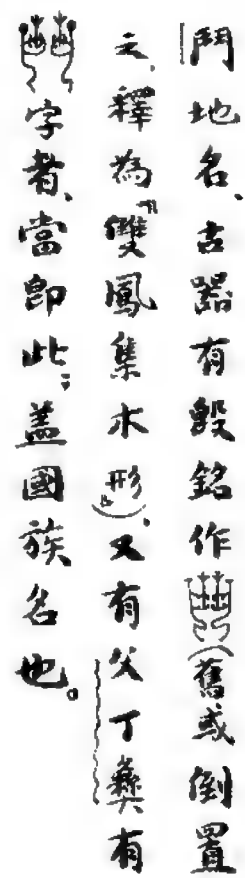 鬥地名、古器有𣪘銘作（舊或倒置
之，釋為「雙鳳集木形」），又有父丁彝有
字者，當即此；蓋國族名也。